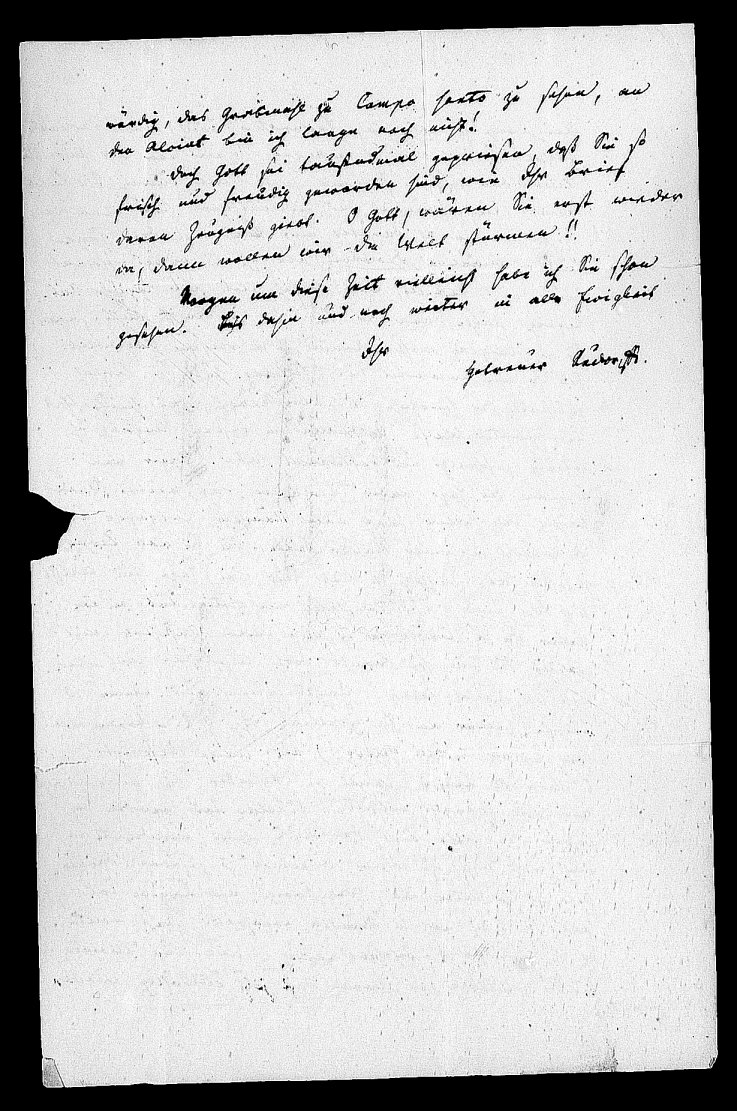 würdig, das Grabmahl zu Campo santo zu sehen, an
den Alciat bin ich lange noch nicht!
Doch Gott sei taußendmal gepriesen, daß Sie so
frisch und freudig geworden sind, wie Ihr Brief
davon Zeugniß giebt. O Gott, wären Sie erst wieder
da, dann wollen wir die Welt stürmen!!
Morgen um diese Zeit vielleicht habe ich Sie schon
gesehen. Bis dahin und noch weiter in alle Ewigkeit
Ihr
getreuer Rudorff.